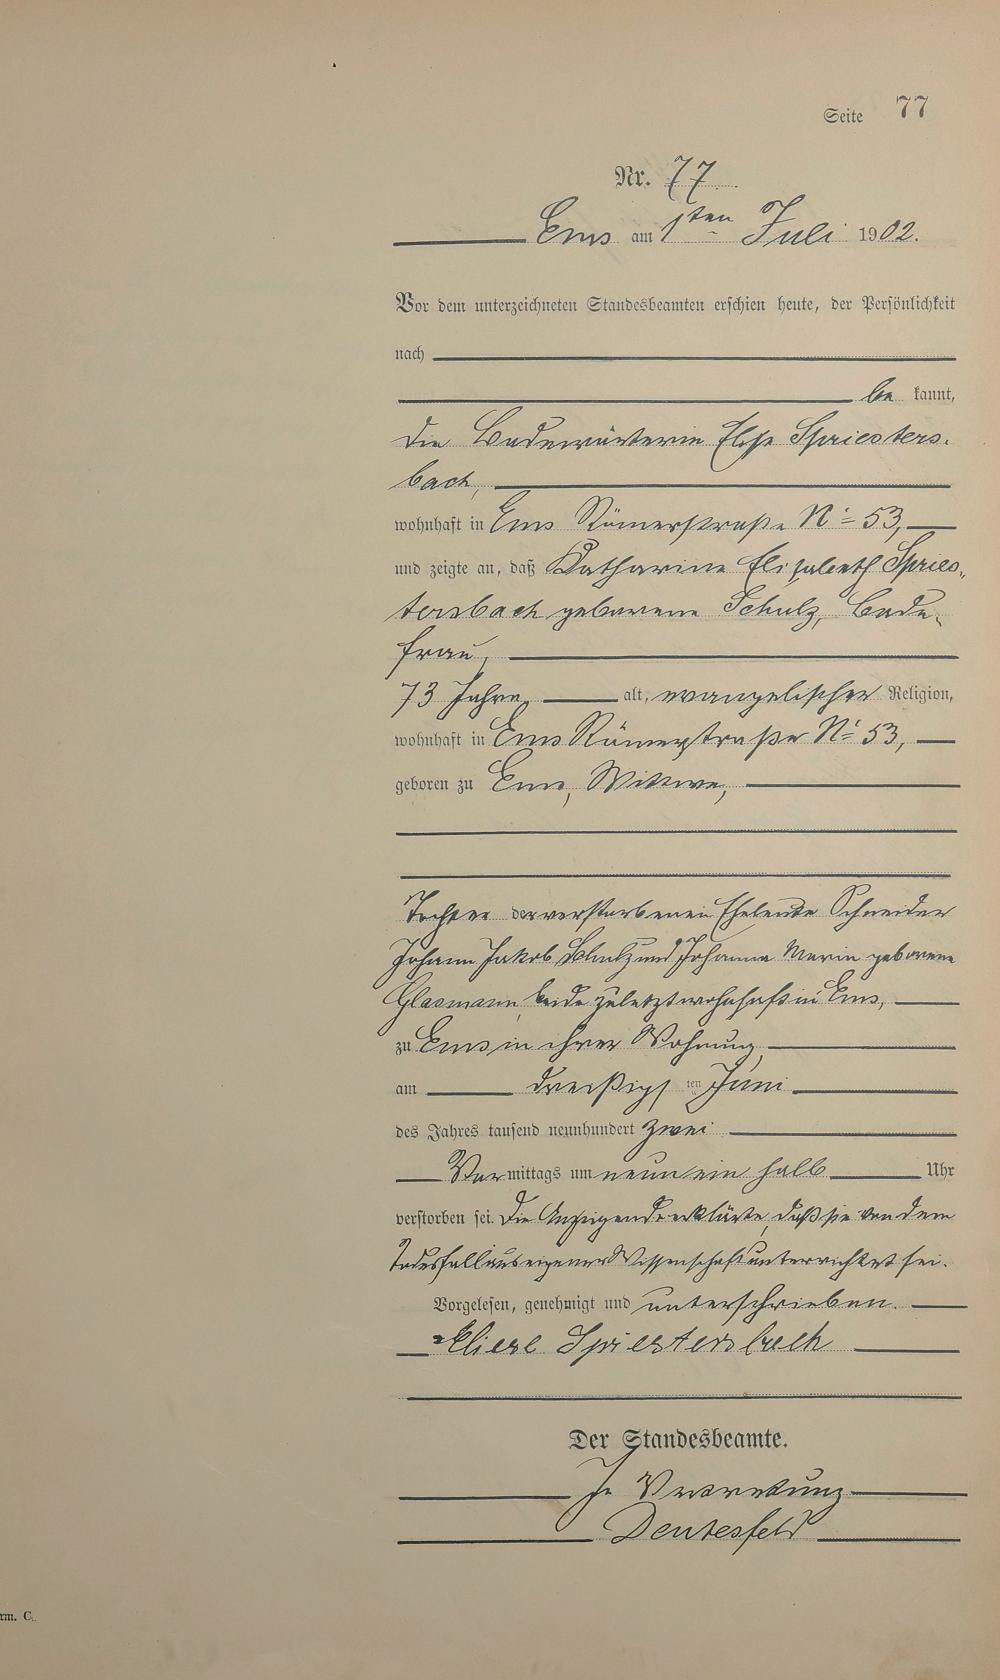 Seite 77
Nr. 77
Ems am 1ten Juli 1902.
Vor dem unterzeichneten Standesbeamten erschien heute, der Persönlichkeit
nach
be kannt,
die Badewärterin Elise Spriesters-
bach,
wohnhaft in Ems Römerstraße No 53,
und zeigte an, daß Katharine Elisabeth Spries-
tersbach geborene Schulz, Bade-
frau,
73 Jahre, alt, evangelischer Religion,
wohnhaft in Ems Römerstraße No 53,
geboren zu Ems, Wittwe,
Tochter der verstorbenen Eheleute Schneider
Johann Jakob Schulz und Johanna Maria geborene
Glasmann, beide zuletzt wohnhaft in Ems,
zu Ems in ihrer Wohnung,
am dreißigsten Juni
des Jahres tausend neunhundert zwei
Vormittags um neun ein halb Uhr
verstorben sei. Die Anzeigende erklärte, daß sie von dem
Todesfall aus eigener Wissenschaft unterrichtet sei.
Vorgelesen, genehmigt und unterschrieben.
Eliese Spriestersbach
Der Standesbeamte.
In Vertretung
Deutesfeld
rm. C.